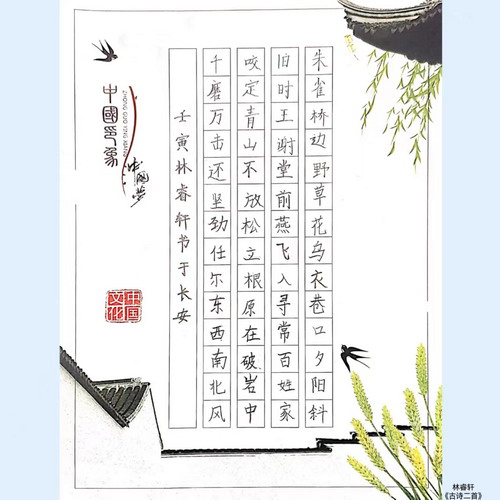 朱雀桥边野草花乌衣巷口夕阳斜
旧时王谢堂前燕飞入寻常百姓家
咬定青山不放松立根原在破岩中
千磨万击还坚劲任尔东西南北风
壬寅林睿轩书于长安
中國印象
中国梦
中国
文化
林睿轩
《古诗二首》